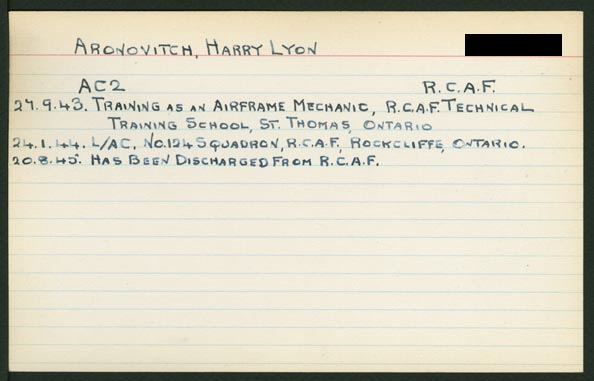 ARONOVITCH, HARRY LYON
AC2 R.C.A.F.
27.9.43. TRAINING AS AN AIRFRAME MECHANIC, R.C.A.F. TECHNICAL
TRAINING SCHOOL, ST. THOMAS, ONTARIO
24.1.44. L/AC, NO.124 SQUADRON, R.C.A.F., ROCKCLIFFE, ONTARIO.
20.8.45. HAS BEEN DISCHARGED FROM R.C.A.F.